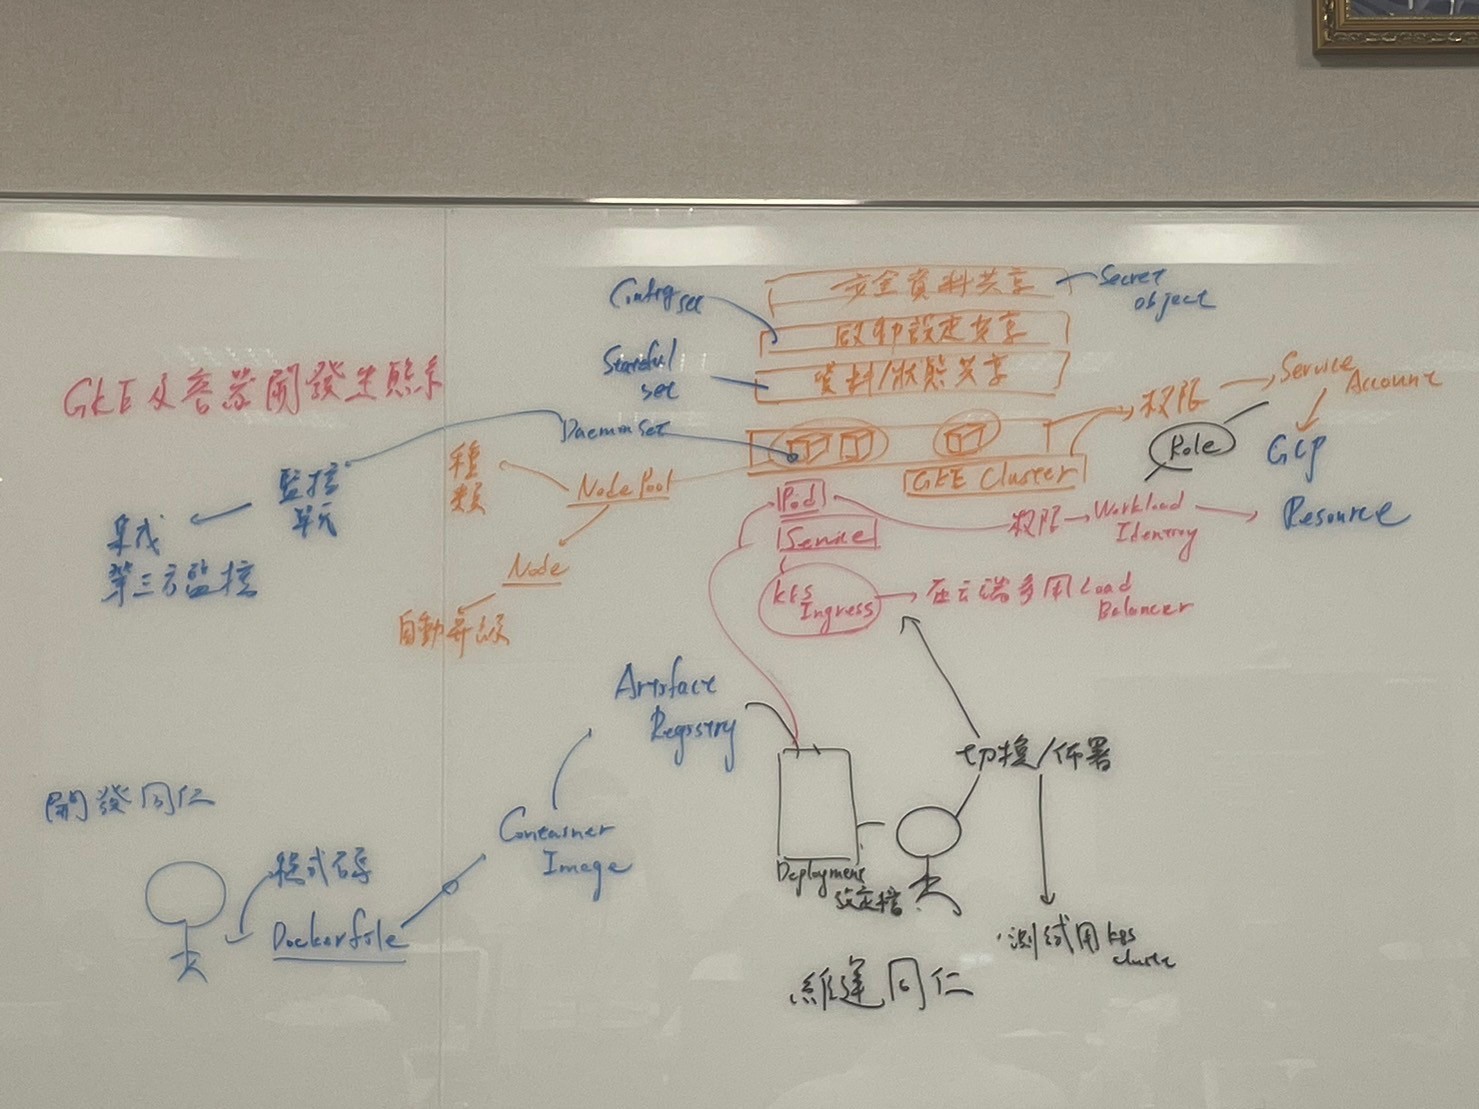 GKE及容器開發生態系
安全資料共享
Secret
object
Config
set
啟動設定共享
Stateful
set
資料/狀態共享
Daemonset
GKE Cluster
權限
Service
Account
Role
GCP
Resource
種
類
Node Pool
Node
監控
單元
集成
第三方監控
Pod
Service
k8s
Ingress
權限
Workload
Identity
在云端多用Load
Balancer
Registry
切換/佈署
開發同仁
程式碼
Dockerfile
Container
Image
Deployment
設定檔
維運同仁
測試用k8s
cluster